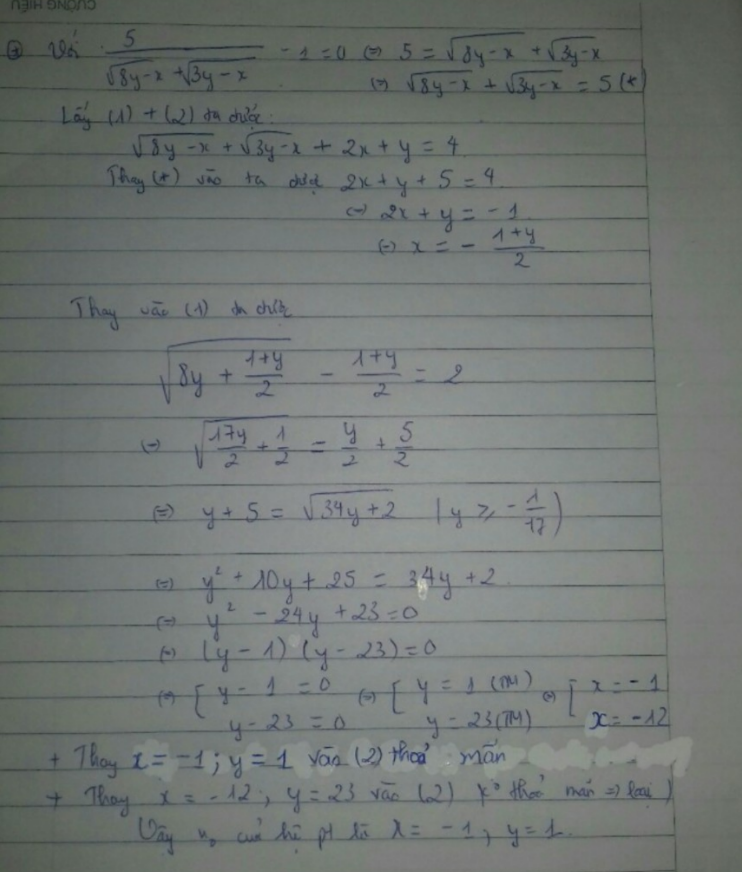 CƯỜNG HIẾU
⊛ Với 5/(√(8y-x) + √(3y-x)) - 1 = 0 ⇔ 5 = √(8y-x) + √(3y-x)
⇔ √(8y-x) + √(3y-x) = 5 (*)
Lấy (1) + (2) ta được:
√(8y-x) + √(3y-x) + 2x + y = 4
Thay (*) vào ta được 2x + y + 5 = 4
⇔ 2x + y = -1
⇔ x = - (1+y)/2
Thay vào (1) ta được
√(8y + (1+y)/2) - (1+y)/2 = 2
⇔ √(17y/2 + 1/2) = y/2 + 5/2
⇔ y + 5 = √(34y+2) (y ≥ -1/17)
⇔ y² + 10y + 25 = 34y + 2
⇔ y² - 24y + 23 = 0
⇔ (y - 1)(y - 23) = 0
⇔ [ y - 1 = 0 ⇔ [ y = 1 (TM) ⇔ [ x = -1
y - 23 = 0 y = 23 (TM) x = -12
+ Thay x = -1; y = 1 vào (2) thoả mãn
+ Thay x = -12; y = 23 vào (2) k° thoả mãn ⇒ loại)
Vậy n₀ của hệ pt là x = -1, y = 1.